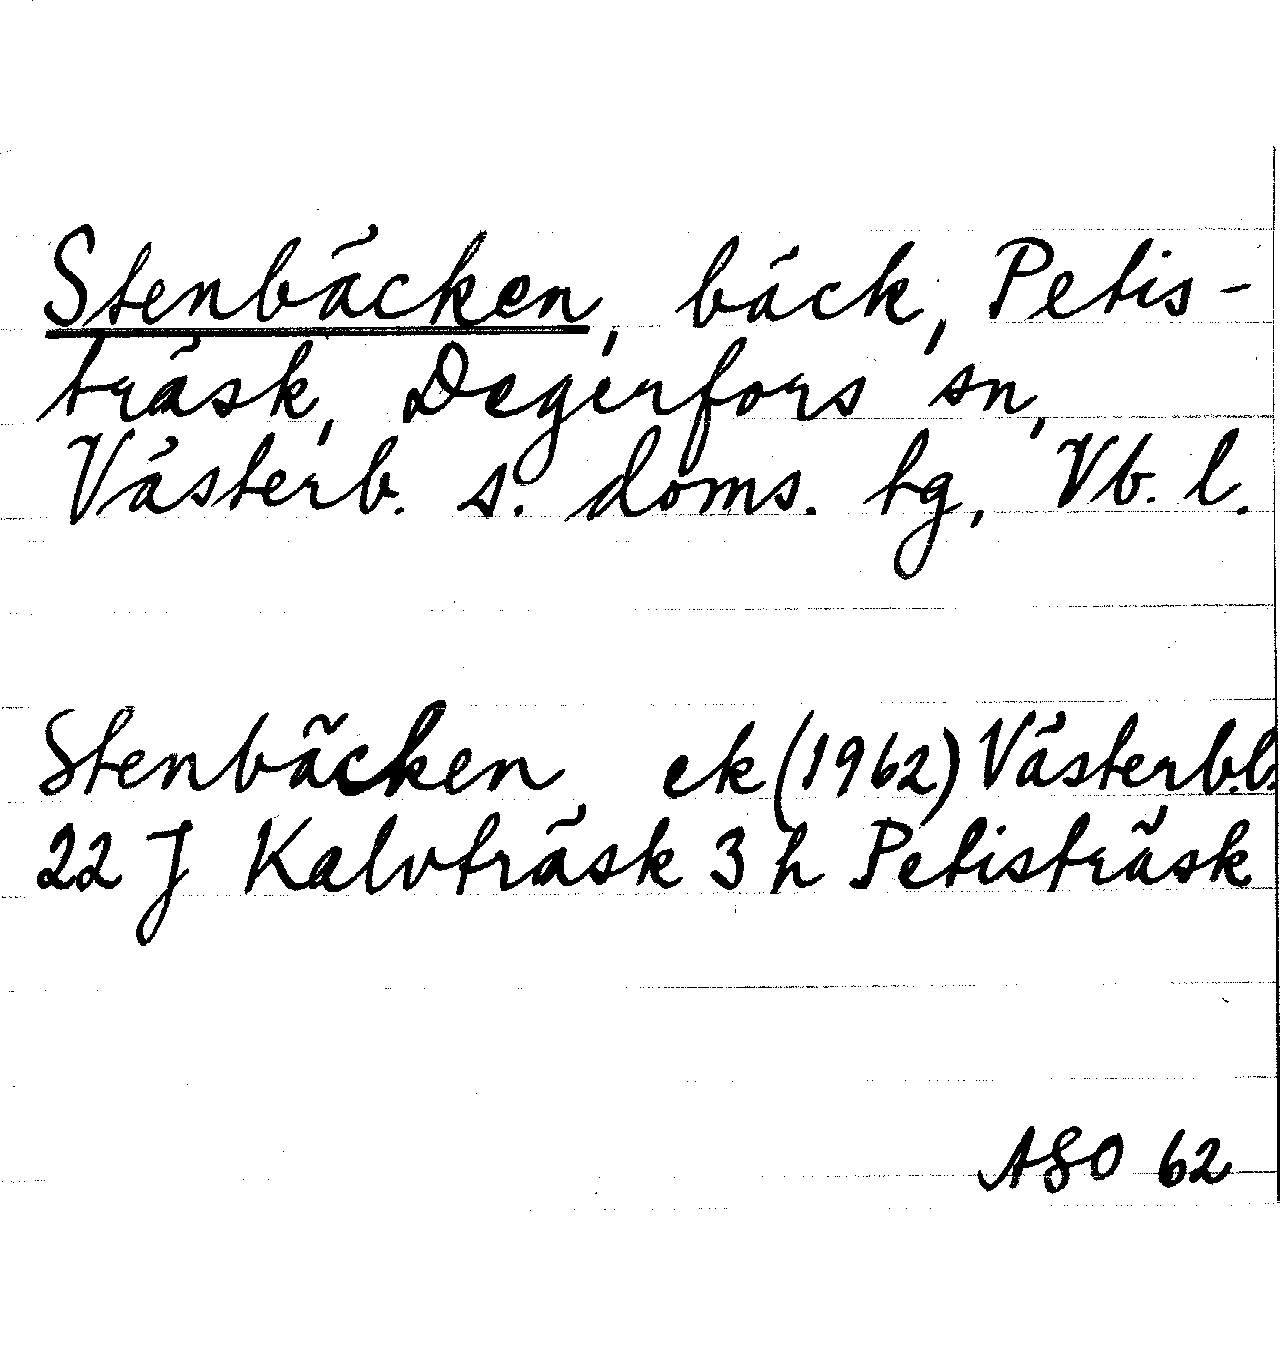 Stenbäcken, bäck, Petis-
träsk, Degerfors sn,
Västerb. s. doms. tg, Vb. l.
Stenbäcken ek (1962) Västerb.l.
22 J Kalvträsk 3 h Petisträsk
ASO 62